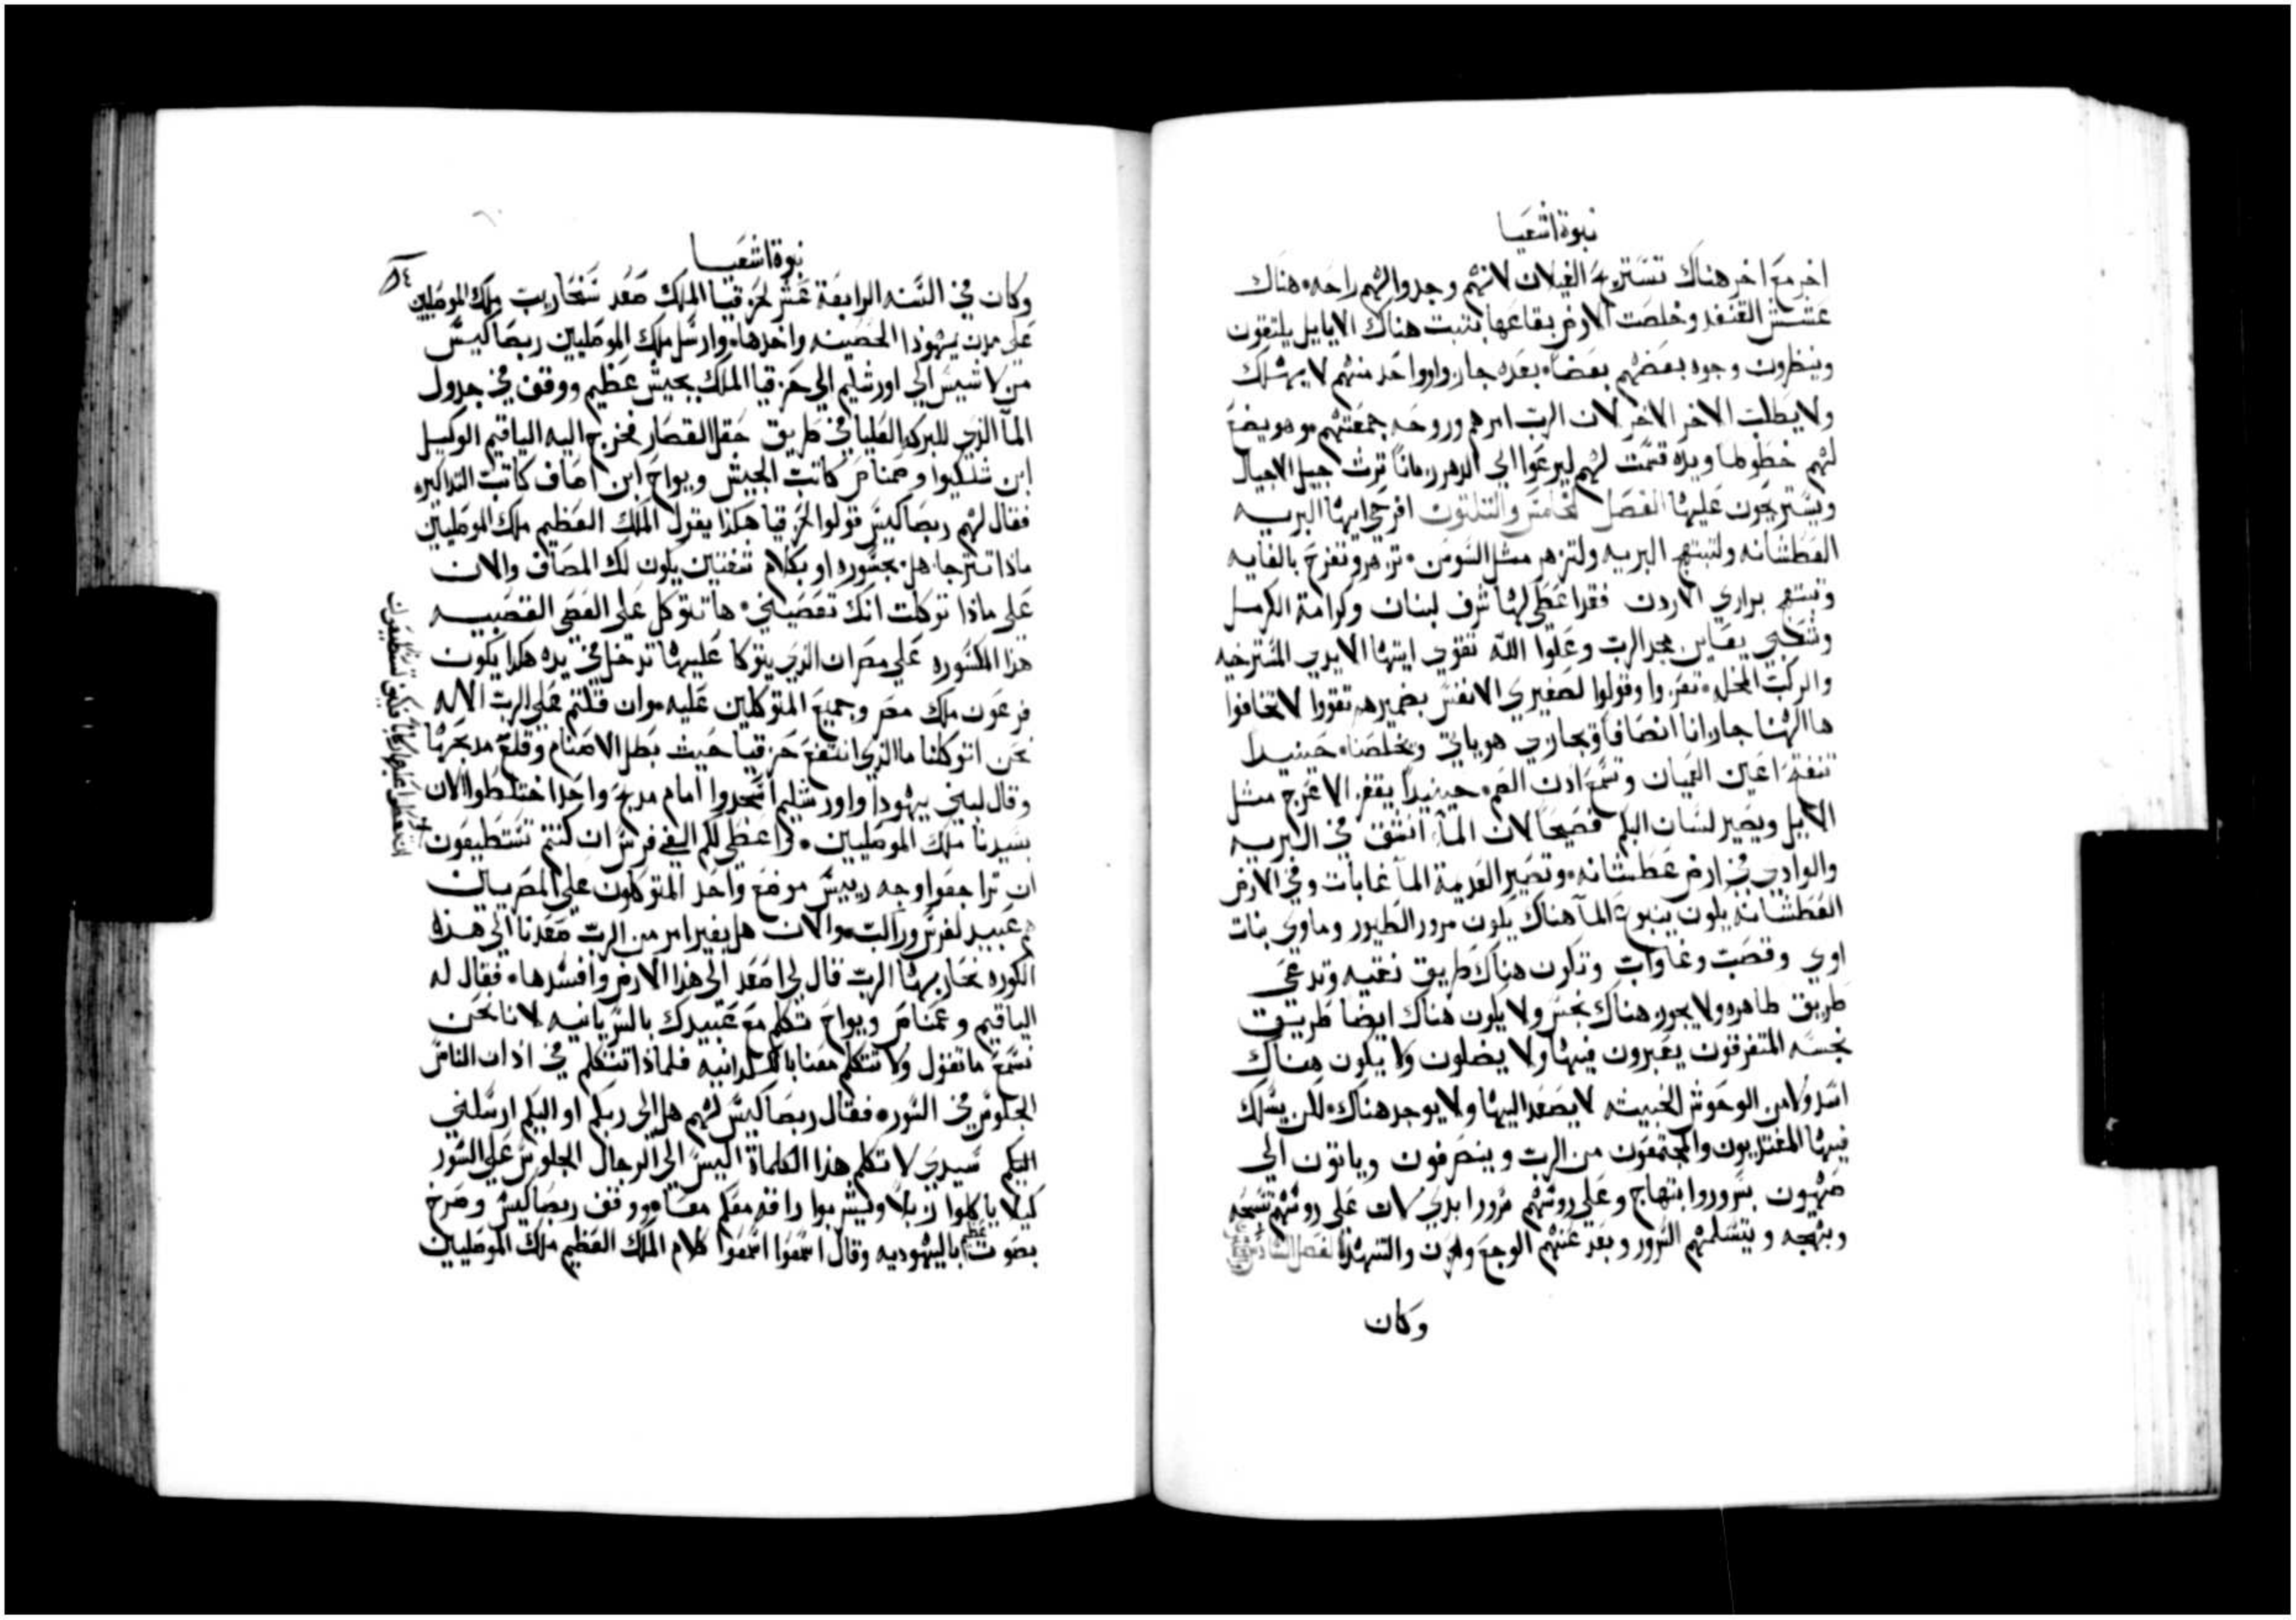 نبوة اشعيا
اخر مع اخر هناك تستريح الغيلان لانهم وجدوا لهم راحه هناك
عشش القنفد وخلصت الارض بقاعها بتبت هناك الايايل يلتقون
وينظرون وجوه بعضهم بعضاً بعده جازوا واحد منهم لا يهلك
ولا يطلب الاخر الاخر لان الرب امرهم وروحه جمعتهم وهو يضع
لهم خطوطا ويده قسمت لهم ليرعوا الي الدهر زماناً ترث جيل الاجيال
ويستريحون عليها الفصل الخامس والتلتون افرحي ايها البريه
العطشانه ولتبتهج البريه ولتزهر مثل السوسن تزهر وتفرح بالغايه
وتبتهج براري الاردن فقد اعطي لها شرف لبنان وكرامة الكرمل
وشعبي يعاين مجد الرب وعلوا الله تقوي ايتها الايدي المسترخيه
والركب المخله تعزوا وقولوا لصغيري الانفس بضميرهم تقووا لا تخافوا
ها الهنا جازانا انصافاً ويجازي هو ياتي ويخلصنا حينيداً
تنفتح اعين العميان وتسمع ادن الصم حينيداً يقفز الاعرج مثل
الايل ويصير لسان البكم فصيحاً لان الما انشق في البريه
والوادي في ارض عطشانه وتصير العديمة الما غابات وفي الارض
العطشانه يكون ينبوع الما هناك يكون مرور الطيور وماوي بنات
اوي وقصب وغاوات وتكون هناك طريق نقيه وتدعي
طريق طاهره ولا يجوز هناك نجس ولا يكون هناك ايضاً طريق
نجسه المتفرقون يعبرون فيها ولا يضلون ولا يكون هناك
اسد ولا من الوحوش الخبيثه لا يصعد اليها ولا يوجد هناك لكن يسلك
فيها المفتديون والمجتمعون من الرب وينصرفون وياتون الي
صهيون بسرور وابتهاج وعلي روسهم سرورا بدي لان علي روسهم تسبحه
وبهجه ويتسلمهم السرور وبعد عنهم الوجع والحزن والتنهد الفصل السادس
وكان
نبوة اشعيا
٨٤
وكان في السنه الرابعة عشر لحزقيا الملك صعد سنحاريب ملك الموصليين
علي مدن يهودا الحصينه واخدها وارسل ملك الموصليين ربصاكيس
من لاشيس الي اورشليم الي حزقيا الملك بجيش عظيم ووقف في جدول
الما الذي للبركه العليا في طريق حقل القصار فخرج اليه الياقيم الوكيل
ابن شلكيوا وصمناص كاتب الجيش ويواح ابن اصاف كاتب التداكره
فقال لهم ربصاكيس قولوا لحزقيا هكذا يقول الملك العظيم ملك الموصليين
ماذا تترجا هل بمشوره او بكلام شفتين يكون لك المصاف والان
علي ماذا توكلت انك تعصيني ها تتوكل علي العصي القصبيه
هذا المكسوره علي مصر ان الذي يتوكا عليها تدخل في يده هكذا يكون
فرعون ملك مصر وجميع المتوكلين عليه وان قلتم علي الرب الاله
نحن اتوكلنا ما الذي انتفع حزقيا حيث بطل الاصنام وقلع مدبحها
وقال لبني يهودا واورشليم اسجدوا امام مدبح واحد اختلطوا الان
بسيدنا ملك الموصليين واعطي لكم الفي فرس ان كنتم تستطيعون
ان تراجعوا وجه رييس موضع واحد المتوكلون علي المصريين
هم عبيد لفرس وراكب والان هل بغير امر من الرب صعدنا الي هذه
الكوره نحاربها الرب قال لي اصعد الي هذا الارض وافسدها فقال له
الياقيم وعمناص ويواح تكلم مع عبيدك بالسريانيه لاننا نحن
نسمع ما تقول ولا تتكلم معنا بالكلدانيه فلماذا تتكلم في اذان الناس
الجلوس في السوره فقال ربصاكيس لهم هل الي ربكم او اليكم ارسلني
اليكم سيدي لاتكلم هذا الكلماة اليس الي الرجال الجلوس علي السور
كيلا ياكلوا زبلاً ويشربوا رافه معكم معاً ووقف ربصاكيس وصرخ
بصوت عظيم باليهوديه وقال اسمعوا اسمعوا كلام الملك العظيم ملك الموصليين